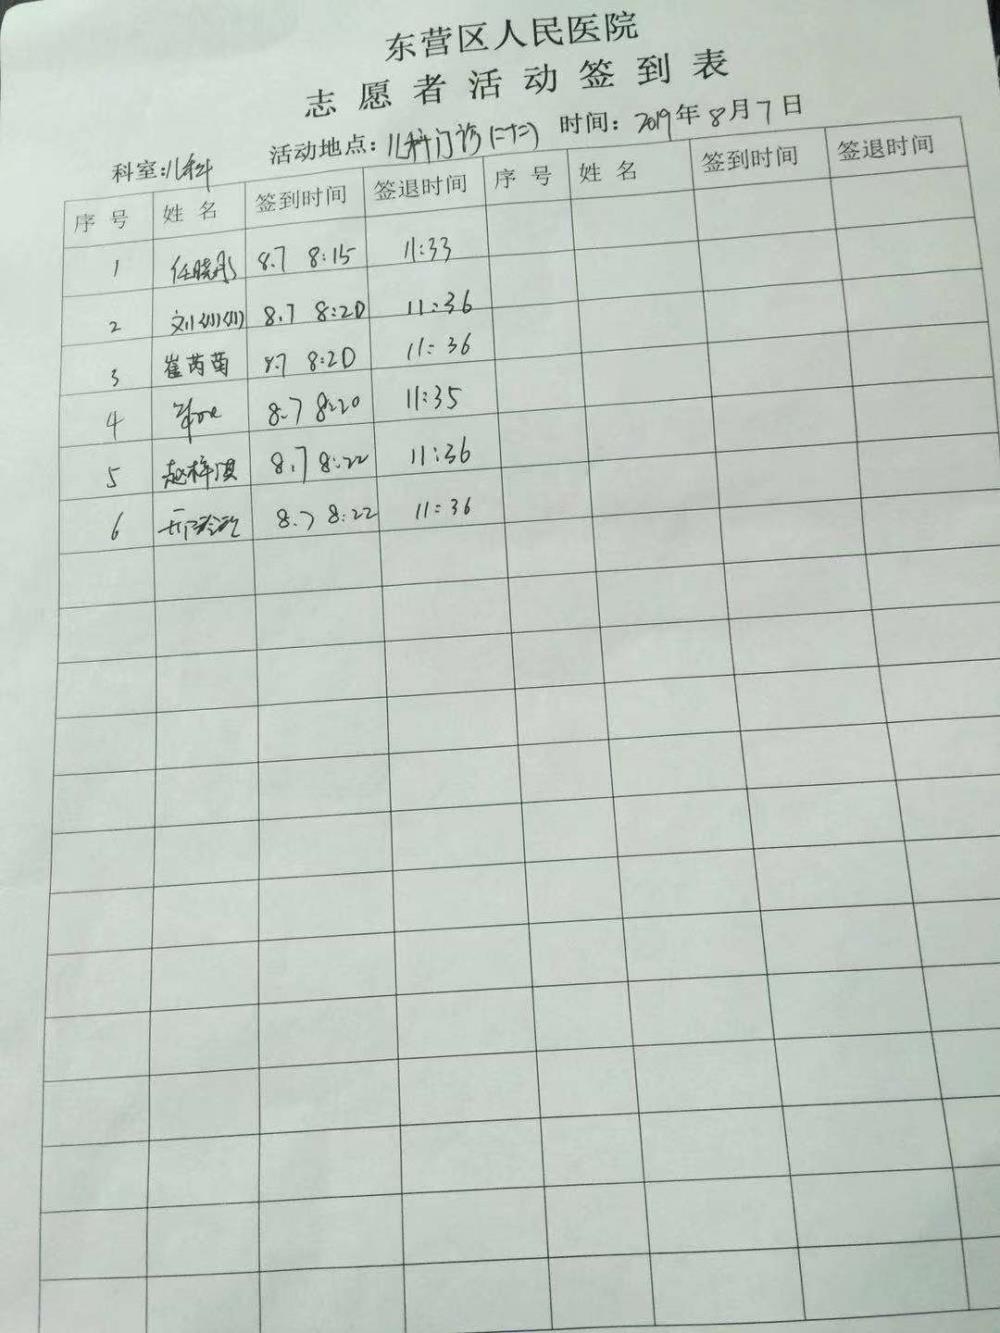 东营区人民医院
志愿者活动签到表
科室:儿科 活动地点:儿科门诊(二十二) 时间:2019年8月7日
序号 姓名 签到时间 签退时间 序号 姓名 签到时间 签退时间
1 任晓彤 8.7 8:15 11:33
2 刘 8.7 8:20 11:36
3 崔芮菌 8.7 8:20 11:36
4 8.7 8:20 11:35
5 赵梓淇 8.7 8:22 11:36
6 8.7 8:22 11:36